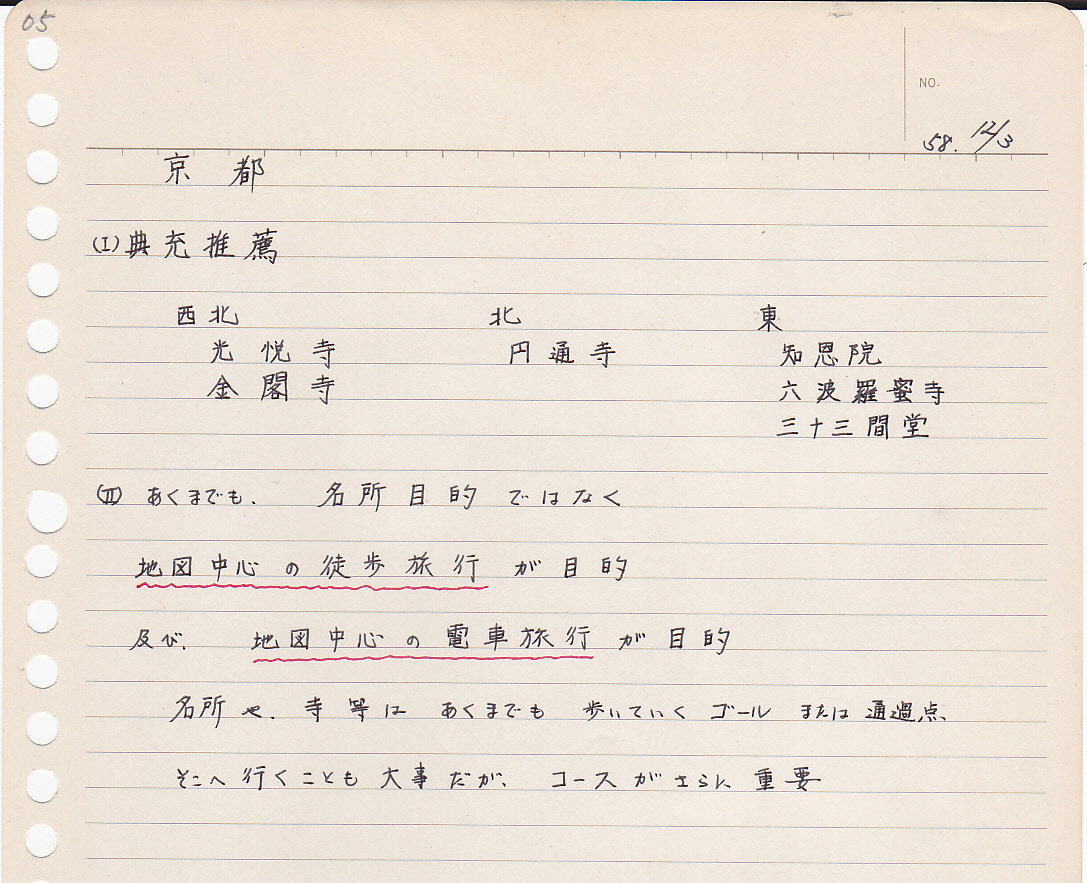 05
NO.
58. 12/3
京都
(I) 典充推薦
西北 北 東
光悦寺 円通寺 知恩院
金閣寺 六波羅蜜寺
三十三間堂
(II) あくまでも、名所目的ではなく
地図中心の徒歩旅行が目的
及び、地図中心の電車旅行が目的
名所や、寺等はあくまでも歩いていくゴールまたは通過点、
そこへ行くことも大事だが、コースがさらに重要